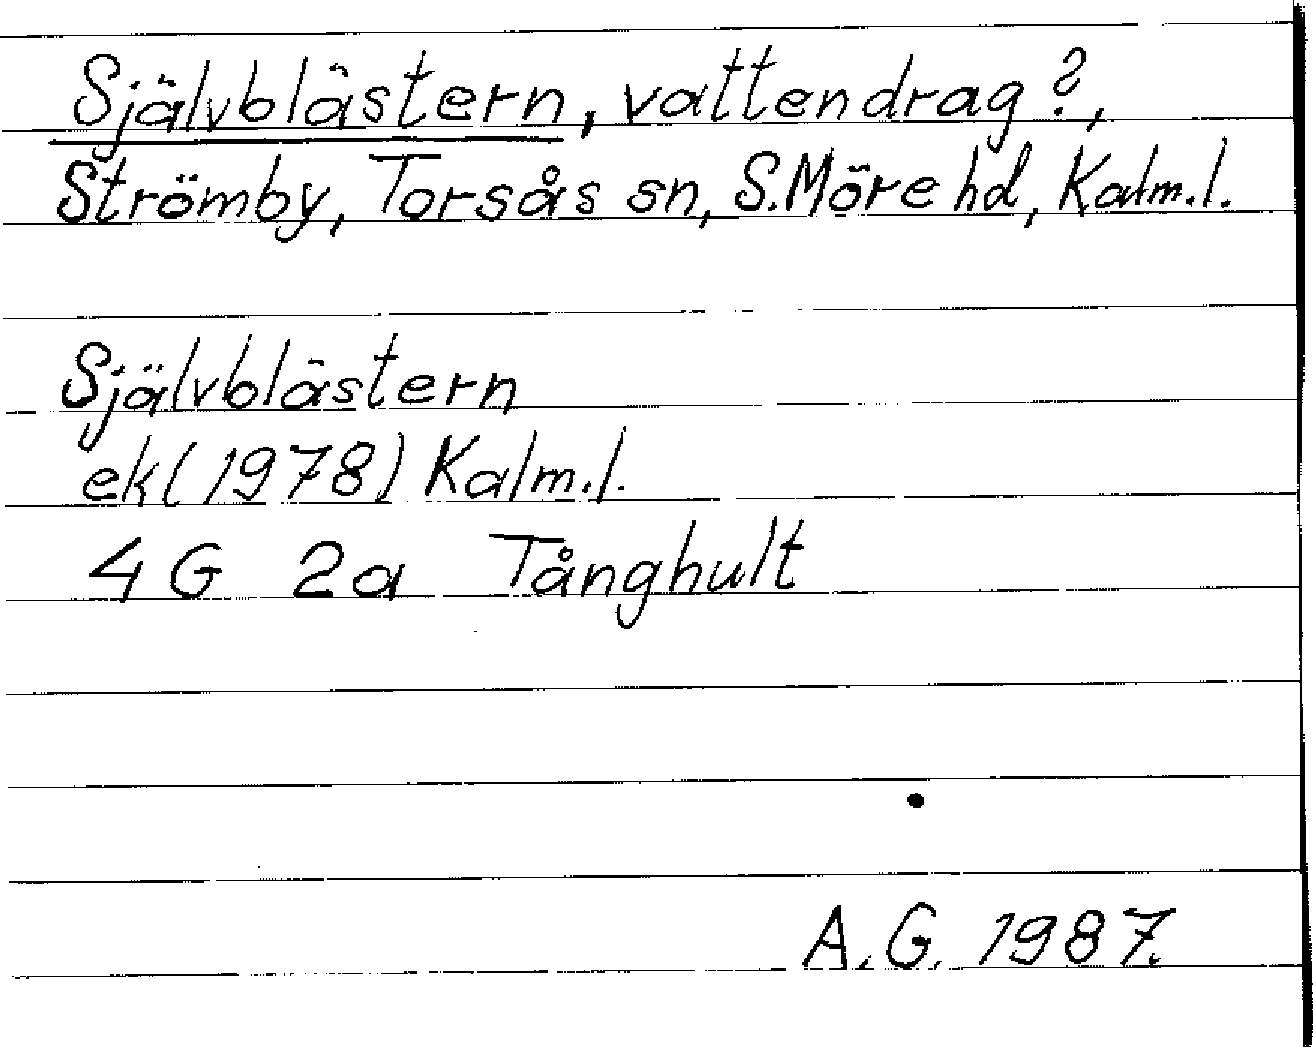 Självblästern, vattendrag?,
Strömby, Torsås sn, S. Möre hd, Kalm. l.
Självblästern
ek (1978) Kalm. l.
4 G 2a Tånghult
A. G. 1987.